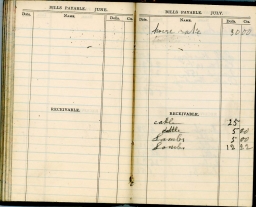 BILLS PAYABLE. JUNE.
Date. Name. Dolls. Cts.
RECEIVABLE.
BILLS PAYABLE. JULY.
Date. Name. Dolls. Cts.
30 00
RECEIVABLE.
25
5 00
Lambs 5 00
Lambs 18 32